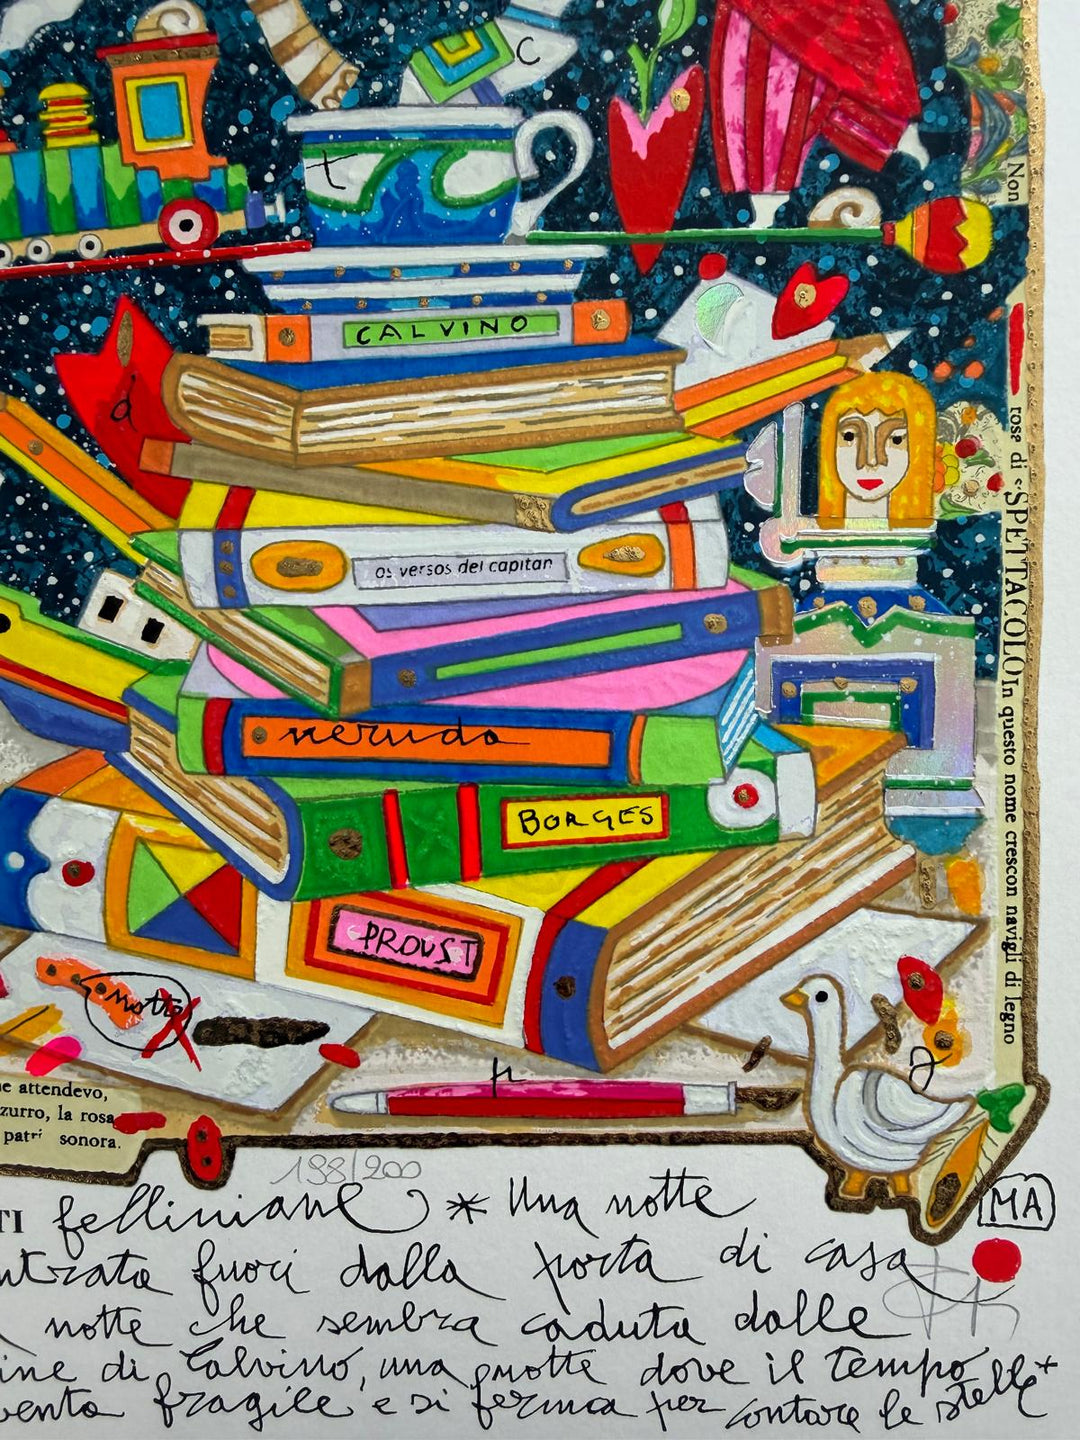 c
t
Non
CALVINO
d
rose di "SPETTACOLO In questo nome crescon navigli di legno
os versos del capitan
neruda
BORGES
PROUST
notte
e attendevo,
zurro, la rosa
patri sonora.
198/200
TI felliniane * Una notte
MA
ntrata fuori dalla porta di casa
notte che sembra caduta dalle
ine di Calvino, una notte dove il tempo
venta fragile e si ferma per contare le stelle